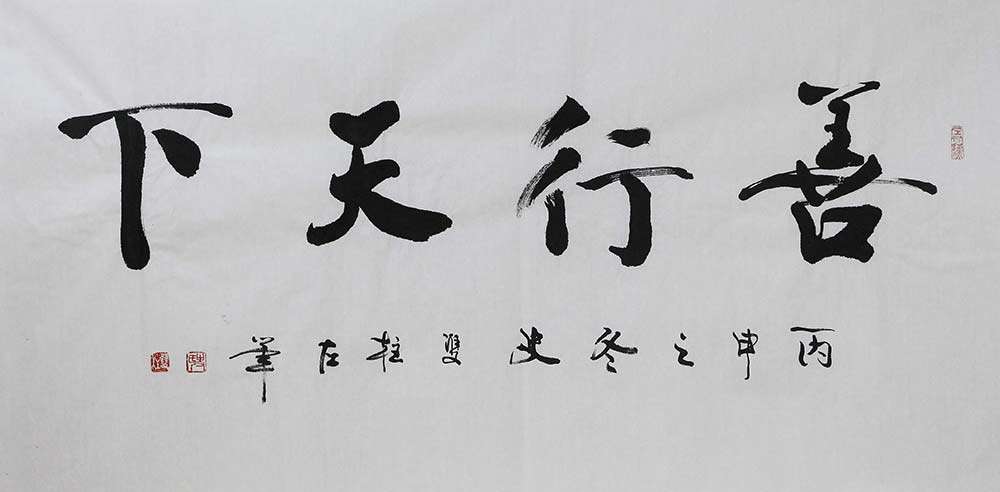 善行天下
丙申之冬史雙柱左筆